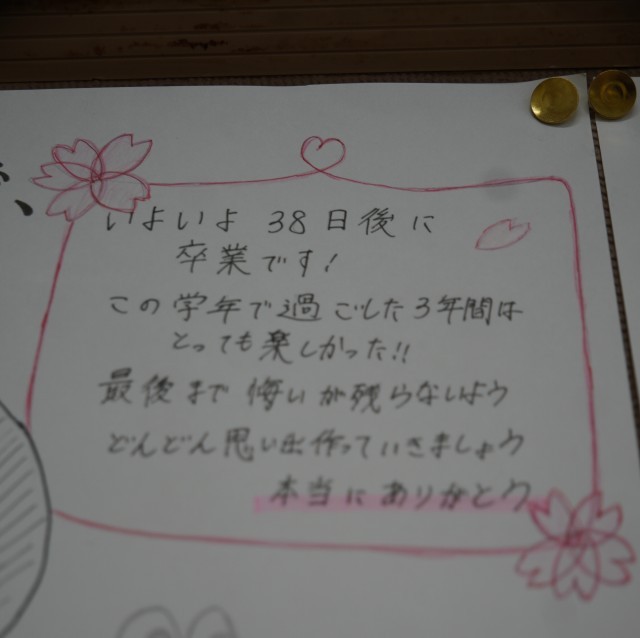 いよいよ 38日後に
卒業です!
この学年で過ごした3年間は
とっても楽しかった!!
最後まで悔いが残らないよう
どんどん思い出作っていきましょう
本当にありがとう